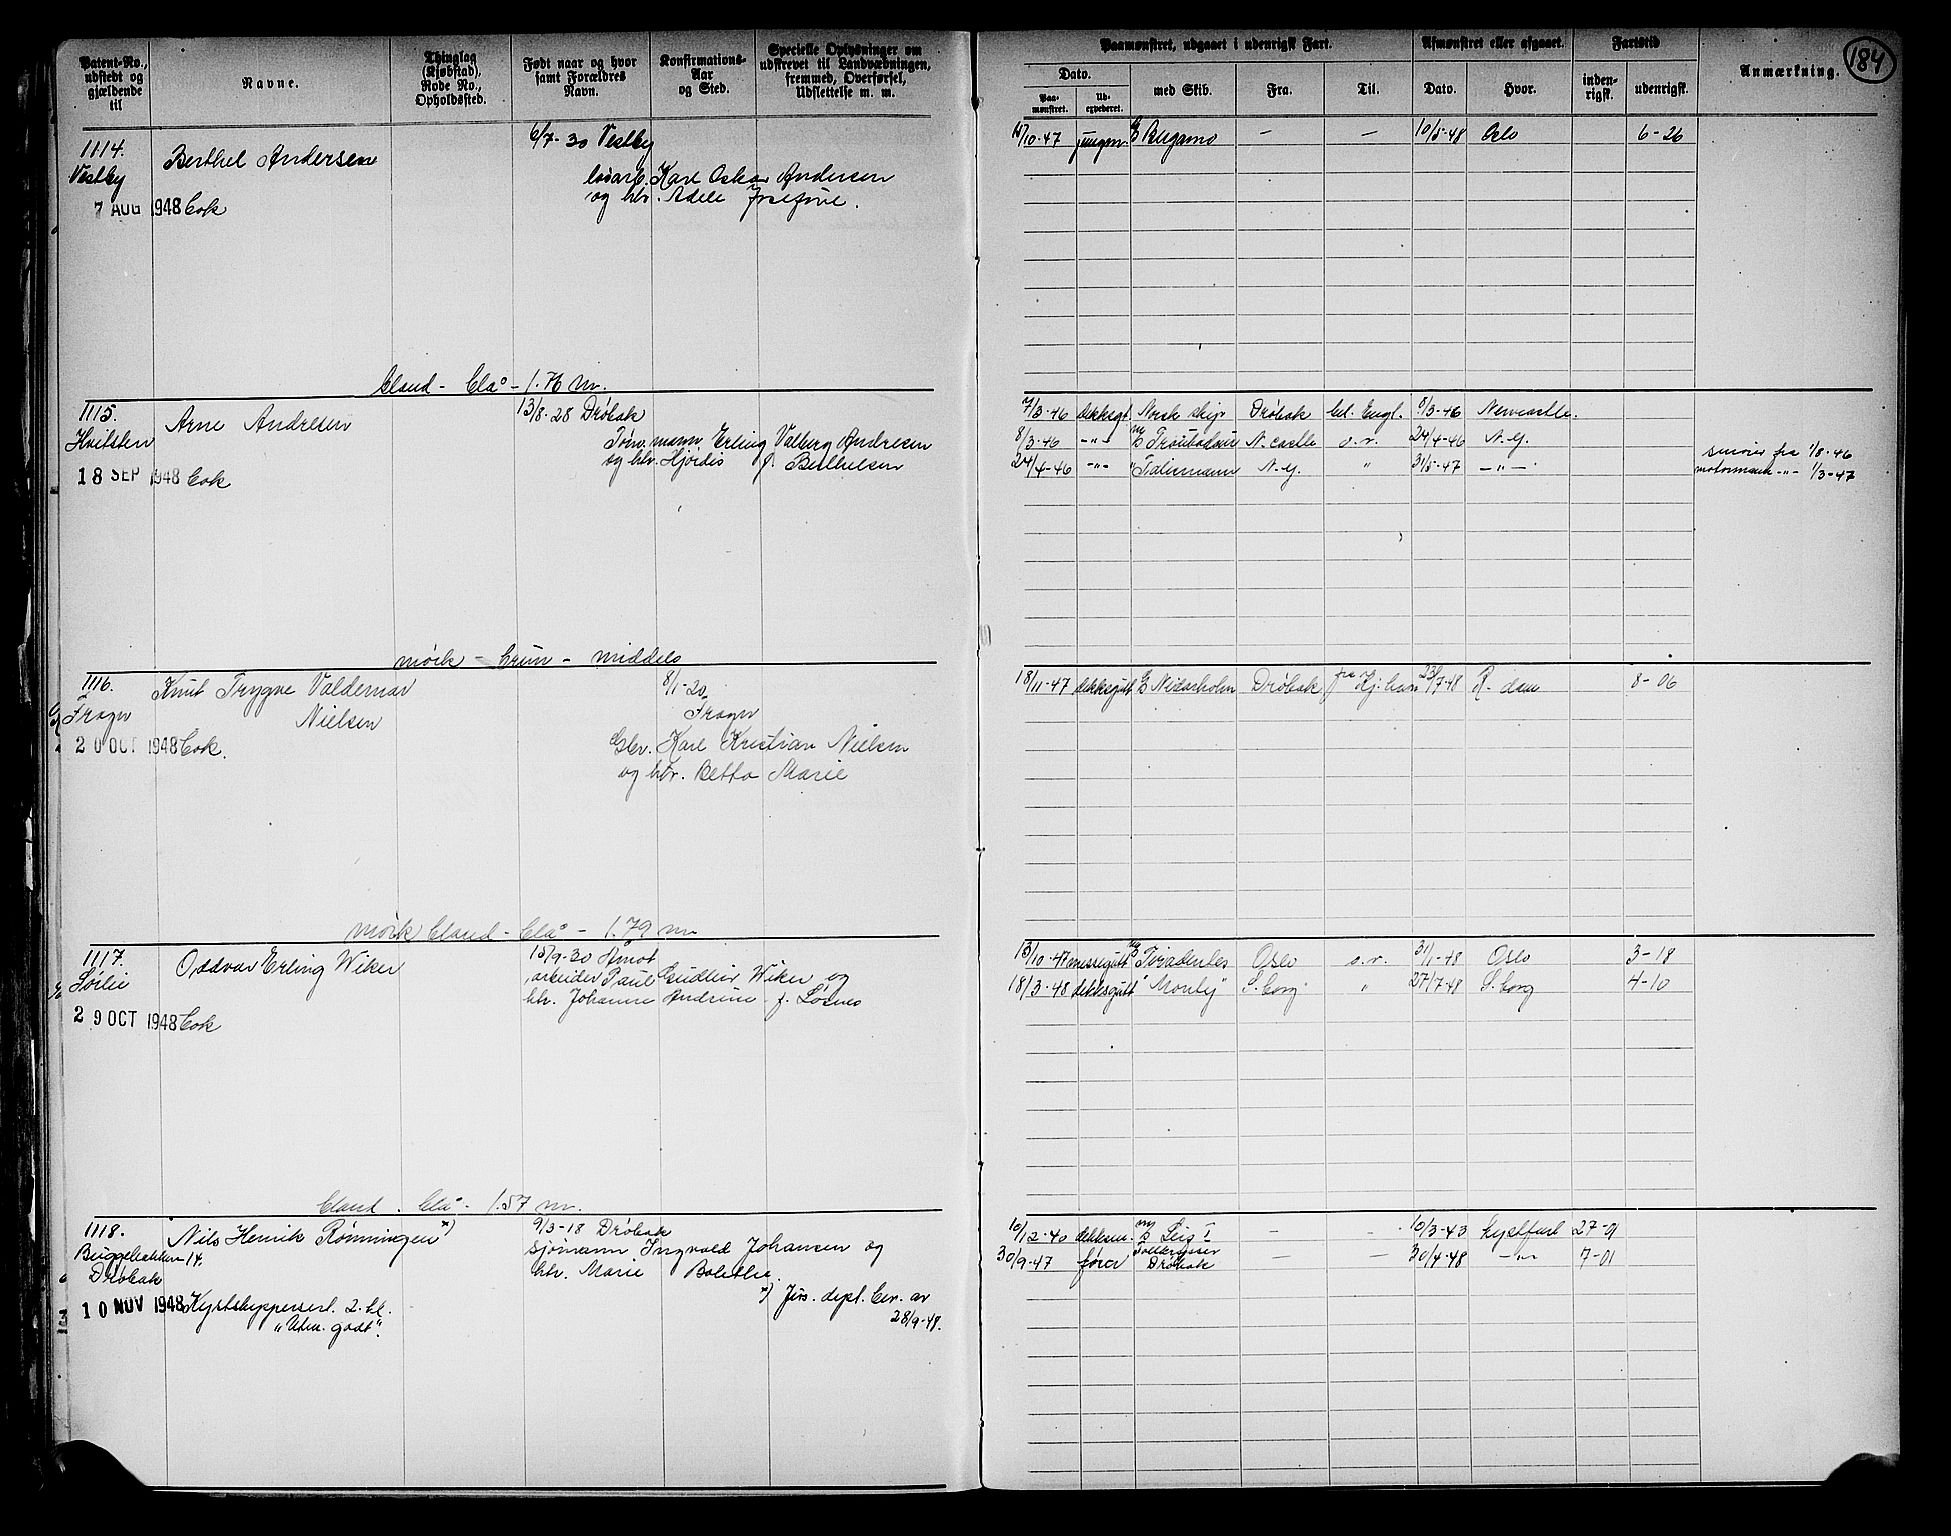 184
Patent-No., udstedt og gjældende til
Navne.
Thinglag (Kjøbstad), Rode No., Opholdssted.
Født naar og hvor samt Forældres Navn.
Konfirmations-Aar og Sted.
Specielle Oplysninger om udskrevet til Landvæbningen, fremmed, Overførsel, Udslettelse m. m.
Paamønstret, udgaaet i udenrigsk Fart.
Dato.
Paa-mønstret.
Ud-expederet.
med Skib.
Fra.
Til.
Afmønstret eller afgaaet.
Dato.
Hvor.
Fartstid
inden-rigsk.
udenrigsk.
Anmærkning.
1114. Berthel Andersen 6/7-30 Vestby
Vestby
løsarb. Karl Oskar Andersen
7 AUG 1948 Cok og htr. Adele Josefine.
10-47 jungm. Bergamo — — 10/5-48 Oslo 6-26
bland - blå - 1.76 m.
1115. Arne Andresen 13/8-28 Drøbak
Hvitsten Tøm.mann Erling Valberg Andresen
og htr. Hjørdis f. Berthelsen
18 SEP 1948 Cok
7/3-46 dekksgt. Norsk skip Drøbak til Engl. 8/3-46 Newcastle.
8/3-46 -"- Troubadour N.castle o.v. 24/4-46 N.Y.
24/4-46 -"- " Talismann N.Y. " 31/5-47 -"-
smører fra 1/8-46
motormann -"- 1/3-47
mørk - brun - middels
1116. Knut Trygve Valdemar Nielsen 8/1-20
Frogn Frogn
20 OCT 1948 Cok. Gbr. Karl Kristian Nielsen
og htr. Betta Marie
18/11-47 dekksgutt Nidarholm Drøbak fra Kj.havn 23/7-48 R-dam 8-06
mørk bland - blå - 1.79 m
1117. Oddvar Erling Wiker 15/9-30 Åmot
Sørlie arbeider Paul Gudteir Wiker og
htr. Johanne Andrine f. Løsnes
29 OCT 1948 Cok
13/10-47 messegutt Tiradentes Oslo o.v. 31/1-48 Oslo 3-18
18/3-48 dekksgutt " S.borg " 27/7-48 S.borg 4-10
bland. blå - 1.57 m.
1118. Nils Henrik Rønningen x) 9/3-18 Drøbak
Bryggebakken 14. sjømann Ingvald Johansen og
Drøbak htr. Marie Bolette.
10 NOV 1948 Kystskippersert. 2. kl.
"Uten. godt".
x) Jus. dept. bev. av
28/9-48.
10/12-40 dekksm. Leis I — — 10/3-43 kystfart 27-01
30/9-47 fører Tollkrysser Drøbak — — 30/4-48 -"- 7-01